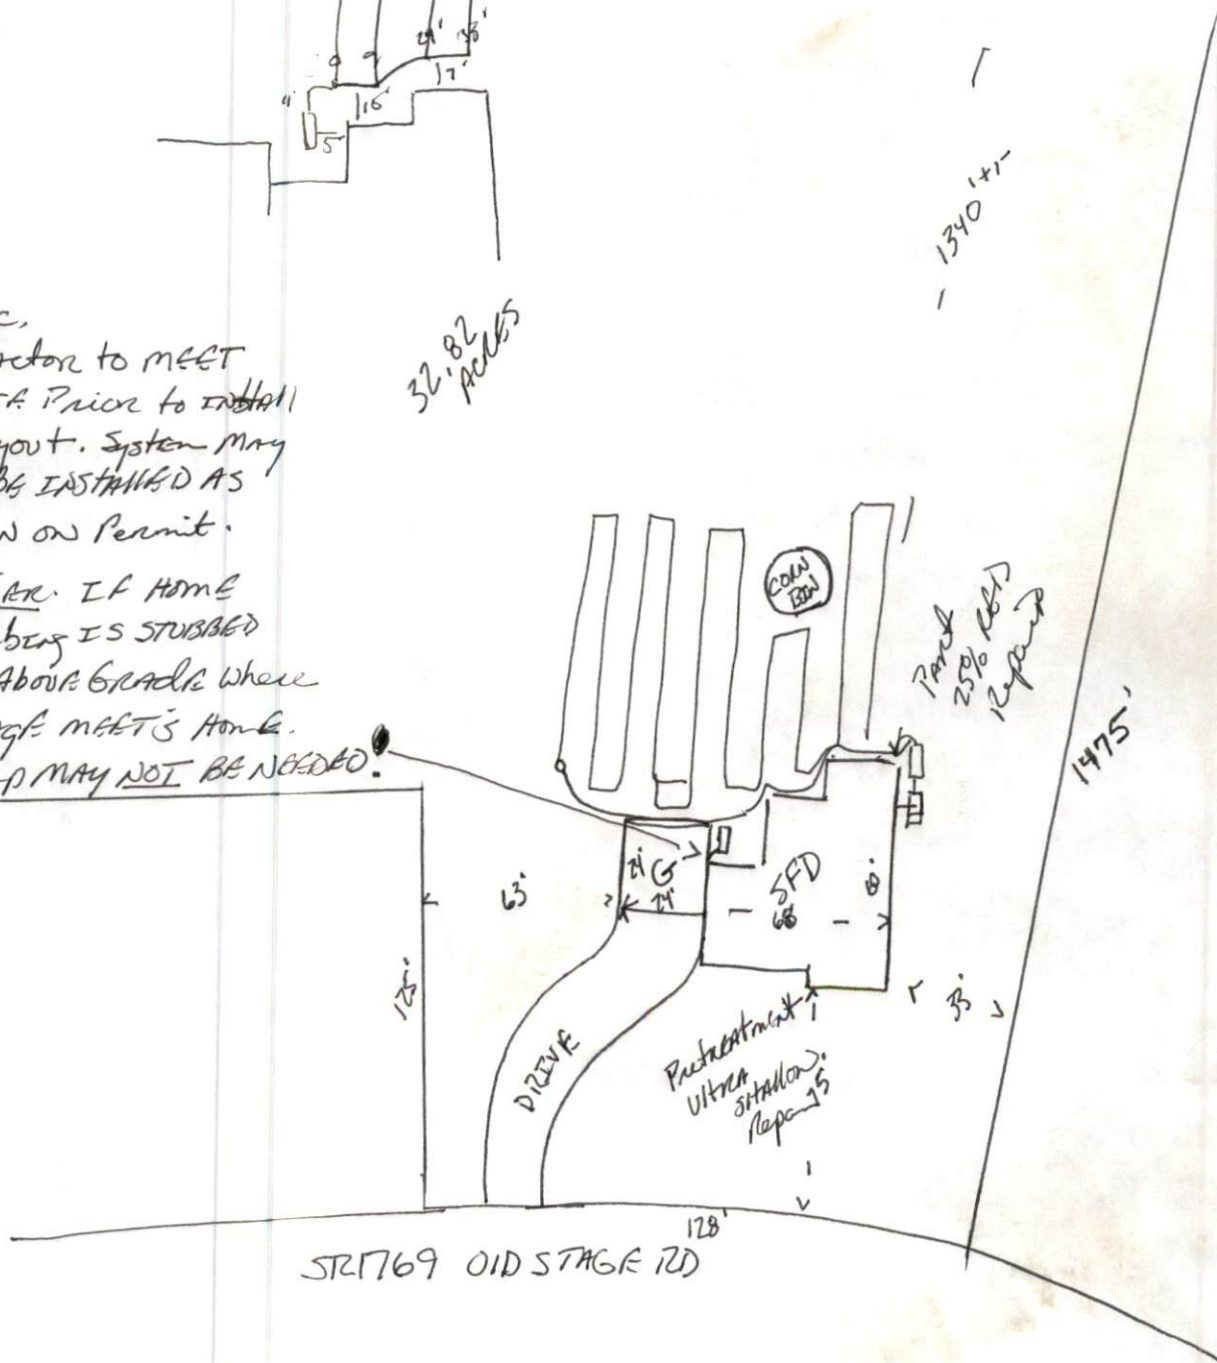 21'
33'
17'
4'
16'
5'
1340'+/-
32.82
ACRES
c,
actor to MEET
Prior to INStall
yout. System MAy
BE INSTAllED AS
N ON Permit.
IF HOME
bing IS STUBBED
ABOVE GRADE Where
gE MEET'S HomE.
MAY NOT BE NEEDED.
CORN
BIN
Part
25% RED
Repair
1475'
63'
24'
G
24'
SFD
68
125'
33'
DRIVE
PretreAtment
UltRA
SHAllOW.
Repair
75
128'
SR1769 OlD STAGE RD